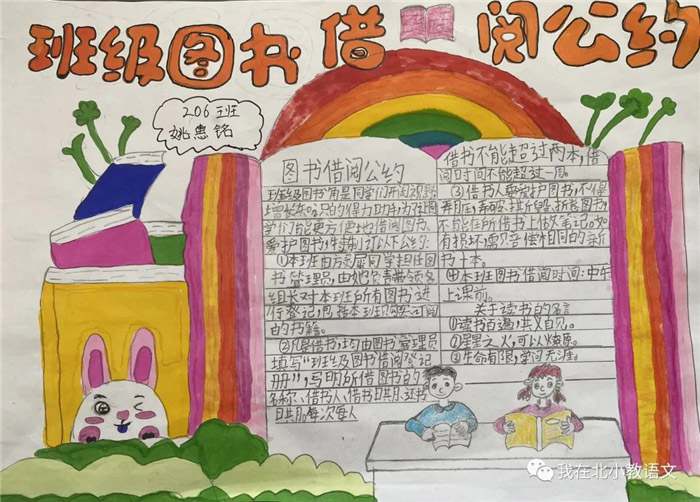 班级图书借阅公约
206班
姚惠铭
图书借阅公约
班级图书角是同学们
学们能更方便地借阅图书、
爱护图书,特制订以下公约:
①本班由 同学担任图
书管理员,由她负责带领各
组长对本班所有图书进
行登记,
的书籍。
②凡是借书,均由图书管理员
填写“班级图书借阅登记
册”,写明所借图书的
名称、借书人、借书日期、还书
日期。每次每人
借书不能超过两本,借
阅时间不能超过一周。
③借书人要爱护图书,不得
不能在所借书上做笔记。如
有损坏,需 赔偿相同的新
图书十本。
④本班图书借阅时间:中午
上课前。
关于读书的名言
①读书百遍,其义自见。
②星星之火,可以燎原。
③生命有限,学问无涯。
我在北小教语文